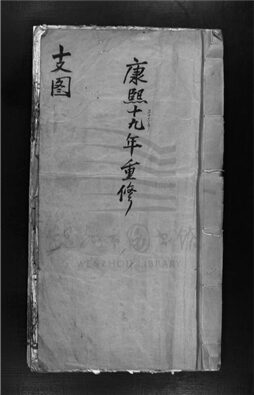 康熙十九年重修
十支图
WENZHOU LIBRARY